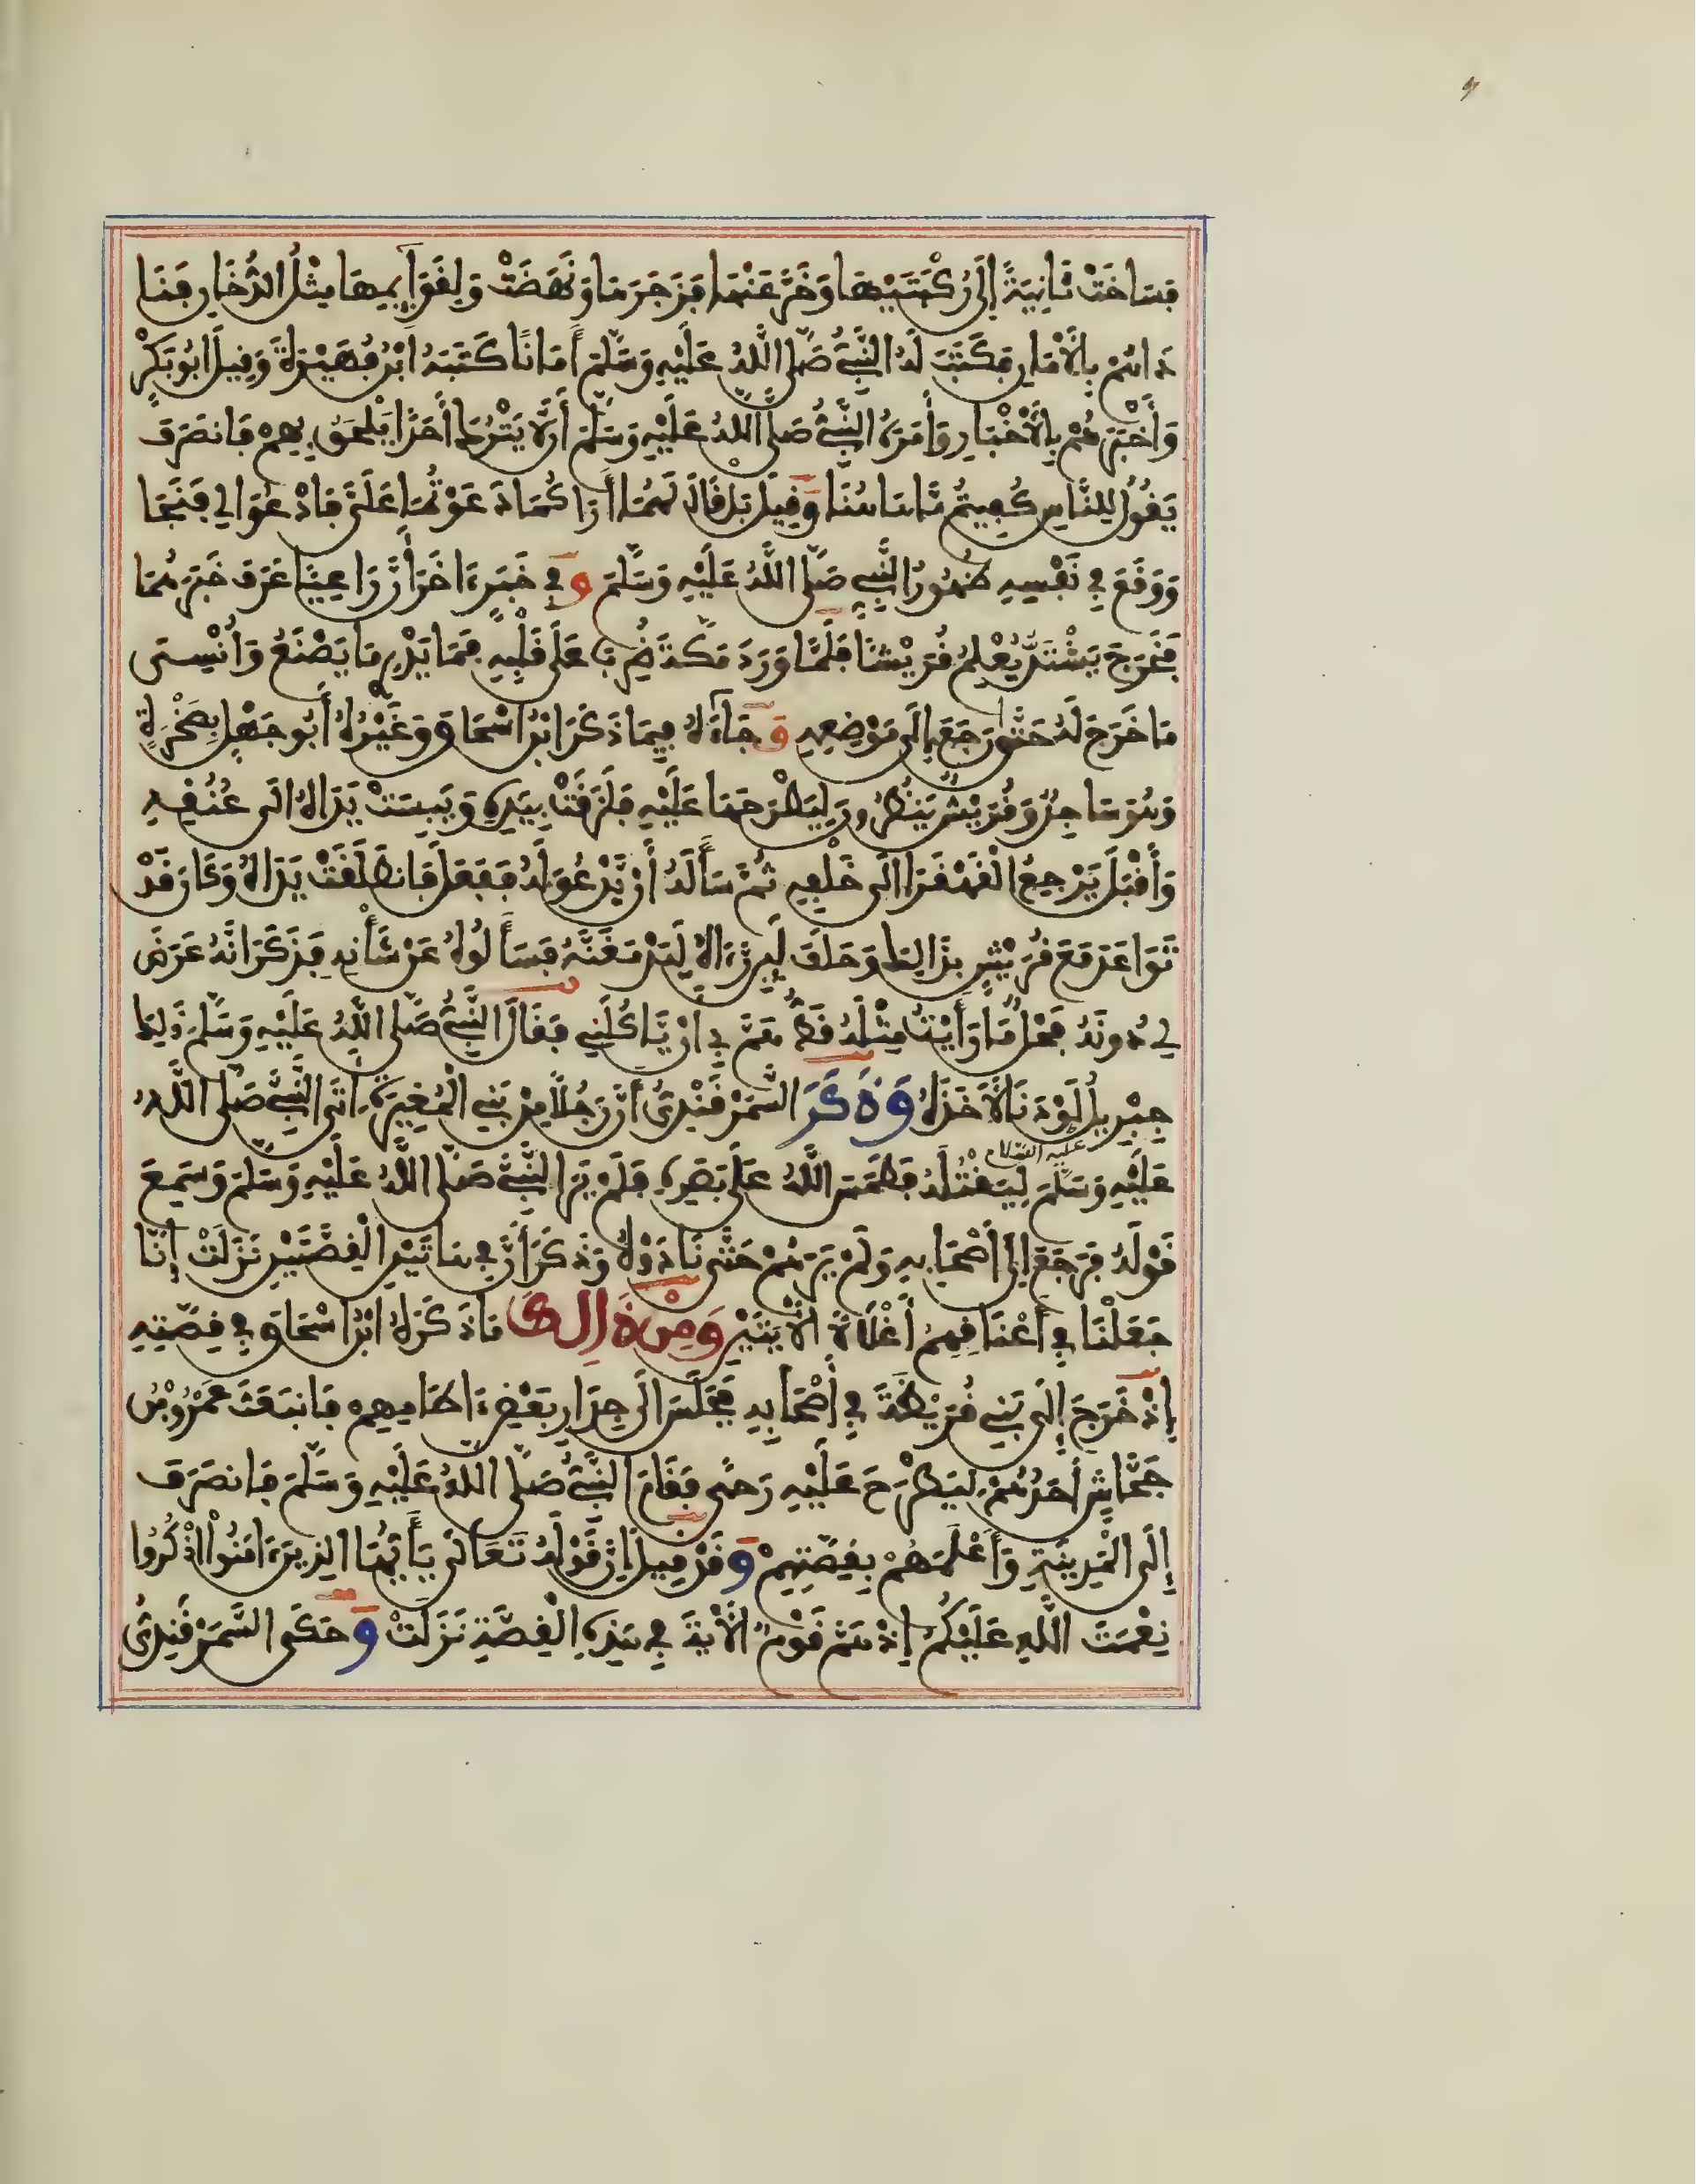 فَسَاخَتْ ثَانِيَةً إِلَى رُكْبَتَيْهَا وَخَرَّ عَنْهَا فَزَجَرَهَا وَنَهَضَتْ وَلِقَوَآئِمِهَا مِثْلُ الدُّخَانِ فَنَا
دَاهُمْ بِالْأَمَانِ فَكَتَبَ لَهُ النَّبِيُّ صَلَّى اللَّهُ عَلَيْهِ وَسَلَّمَ أَمَانًا كَتَبَهُ ابْنُ فُهَيْرَةَ وَقِيلَ أَبُو بَكْرٍ
وَأَخْبَرَهُمْ بِالْأَخْبَارِ وَأَمَرَهُ النَّبِيُّ صَلَّى اللَّهُ عَلَيْهِ وَسَلَّمَ أَلَّا يَتْرُكَ أَحَدًا يَلْحَقُ بِهِمْ فَانصَرَفَ
يَقُولُ لِلنَّاسِ كُفِيتُمْ مَّا هَاهُنَا وَقِيلَ بَلْ قَالَ لَهُمَا أَرَاكُمَا دَعَوْتُمَا عَلَيَّ فَادْعُوَا لِي فَنَجَا
وَوَقَعَ فِي نَفْسِهِ ظُهُورُ النَّبِيِّ صَلَّى اللَّهُ عَلَيْهِ وَسَلَّمَ وَفِي خَبَرٍ ءَاخَرَ أَنَّ رَاعِيًا عَرَفَ خَبَرَهُمَا
فَخَرَجَ يَشْتَدُّ يُعْلِمُ قُرَيْشًا فَلَمَّا وَرَدَ مَكَّةَ ضُرِبَ عَلَى قَلْبِهِ فَمَا يَدْرِي مَا يَصْنَعُ وَأُنْسِيَ
مَا خَرَجَ لَهُ حَتَّى رَجَعَ إِلَى مَوْضِعِهِ وَجَآءَهُ فِيمَا ذَكَرَ ابْنُ اسْحَاقَ وَغَيْرُهُ أَبُو جَهْلٍ بِصَخْرَةٍ
وَهُوَ سَاجِدٌ وَقُرَيْشٌ يَنْظُرُونَ لِيَطْرَحَهَا عَلَيْهِ فَلَزِقَتْ بِيَدِهِ وَيَبِسَتْ يَدَاهُ إِلَى عُنُقِهِ
وَأَقْبَلَ يَرْجِعُ الْقَهْقَرَا إِلَى خَلْفِهِ ثُمَّ سَأَلَهُ أَنْ يَّدْعُوَ لَهُ فَفَعَلَ فَانطَلَقَتْ يَدَاهُ وَكَانَ قَدْ
تَوَاعَدَ مَعَ قُرَيْشٍ بِذَالِكَ وَحَلَفَ لَئِن رَّءَاهُ لَيَدْمَغَنَّهُ فَسَأَلُوهُ عَنْ شَأْنِهِ فَذَكَرَ انَّهُ عَرَضَ
لِي دُونَهُ فَحْلٌ مَّا رَأَيْتُ مِثْلَهُ قَطُّ هَمَّ بِي أَنْ يَّاكُلَنِي فَقَالَ النَّبِيُّ صَلَّى اللَّهُ عَلَيْهِ وَسَلَّمَ ذَلِكَ
جِبْرِيلُ لَوْ دَنَا لَأَخَذَهُ وَذَكَرَ السَّمَرْقَنْدِيُّ أَنَّ رَجُلًا مِنْ بَنِي الْمُغِيرَةِ أَتَى النَّبِيَّ صَلَّى اللَّهُ
عليه السلام
عَلَيْهِ وَسَلَّمَ لِيَقْتُلَهُ فَطَمَسَ اللَّهُ عَلَى بَصَرِهِ فَلَمْ يَرَ النَّبِيَّ صَلَّى اللَّهُ عَلَيْهِ وَسَلَّمَ وَسَمِعَ
قَوْلَهُ فَرَجَعَ إِلَى أَصْحَابِهِ وَلَمْ يَرَهُمْ حَتَّى نَادَوْهُ وَذَكَرَ أَنَّ فِي هَاتَيْنِ الْقِصَّتَيْنِ نَزَلَتْ إِنَّا
جَعَلْنَا فِي أَعْنَاقِهِمُ أَغْلَالًا الْآيَتَيْنِ وَمِنْ ذَالِكَ مَا ذَكَرَهُ ابْنُ اسْحَاقَ فِي قِصَّتِهِ
إِذْ خَرَجَ إِلَى بَنِي قُرَيْظَةَ فِي أَصْحَابِهِ فَجَلَسَ إِلَى جِدَارِ بَعْضِ ءَاطَامِهِمْ فَانبَعَثَ عَمْرُو بْنُ
جَحَّاشٍ أَحَدُهُمْ لِيَطْرَحَ عَلَيْهِ رَحًى فَقَامَ النَّبِيُّ صَلَّى اللَّهُ عَلَيْهِ وَسَلَّمَ فَانصَرَفَ
إِلَى الْمَدِينَةِ وَأَعْلَمَهُمْ بِقِصَّتِهِمْ وَقَدْ قِيلَ إِنَّ قَوْلَهُ تَعَالَى يَأَيُّهَا الذِينَ ءَامَنُوا اذْكُرُوا
نِعْمَتَ اللَّهِ عَلَيْكُمُ إِذْ هَمَّ قَوْمٌ الْآيَةَ فِي هَذِهِ الْقِصَّةِ نَزَلَتْ وَحَكَى السَّمَرْقَنْدِيُّ